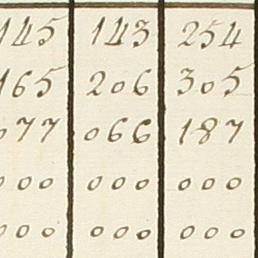 145 143 254
165 206 305
077 066 187
000 000 000
000 000 000